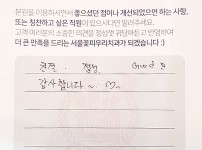 본원을 이용하시면서 좋으셨던 점이나 개선되었으면 하는 사항,
또는 칭찬하고 싶은 직원이 있으시다면 말씀해주세요.
고객 여러분의 소중한 의견을 정성껏 귀담아듣고 반영하여
더 큰 만족을 드리는 서울꽃피우리치과가 되겠습니다 :)
친절. 정성
감사합니다 ~